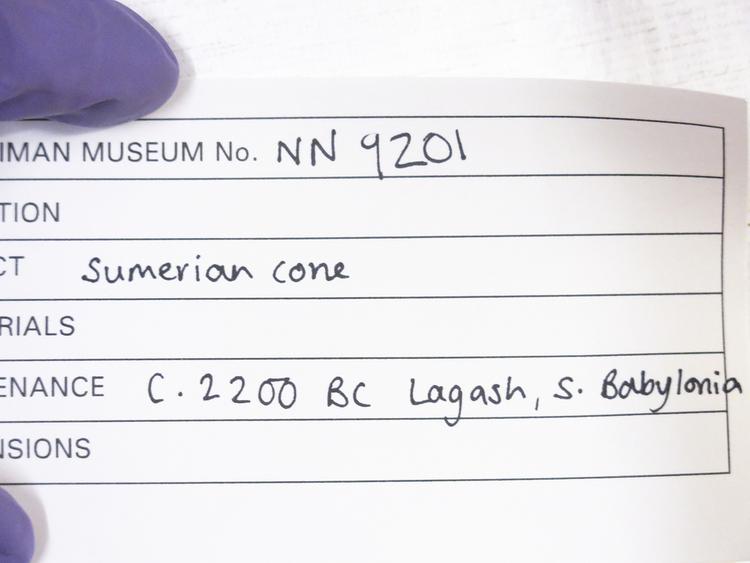 IMAN MUSEUM No. NN 9201
TION
CT Sumerian cone
RIALS
ENANCE C. 2200 BC Lagash, S. Babylonia
NSIONS